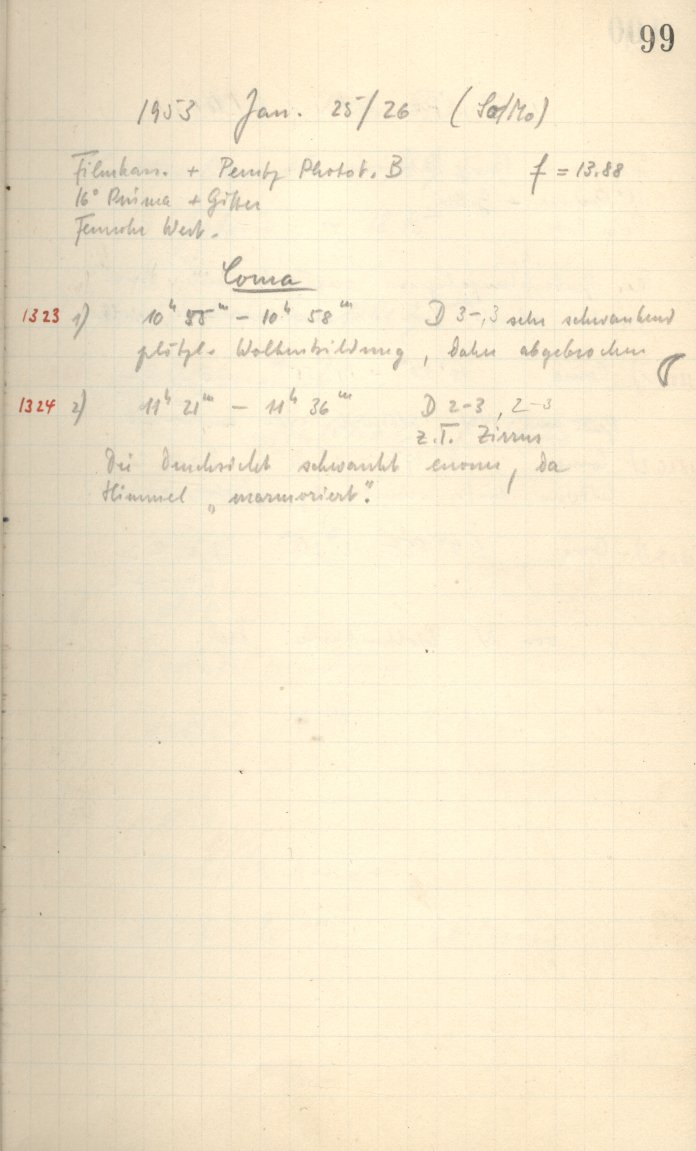 99
1953 Jan. 25/26 (So/Mo)
Filmkas. + Perutz Photot. B f = 13.88
16° Prisma + Gitter
Fernrohr West.
Coma
1323 1) 10ʰ 55ᵐ – 10ʰ 58ᵐ D 3–, 3 sehr schwankend
plötzl. Wolkenbildung, daher abgebrochen
1324 2) 11ʰ 21ᵐ – 11ʰ 36ᵐ D 2–3, 2–3
z.T. Zirrus
Die Durchsicht schwankt enorm, da
Himmel „marmoriert".